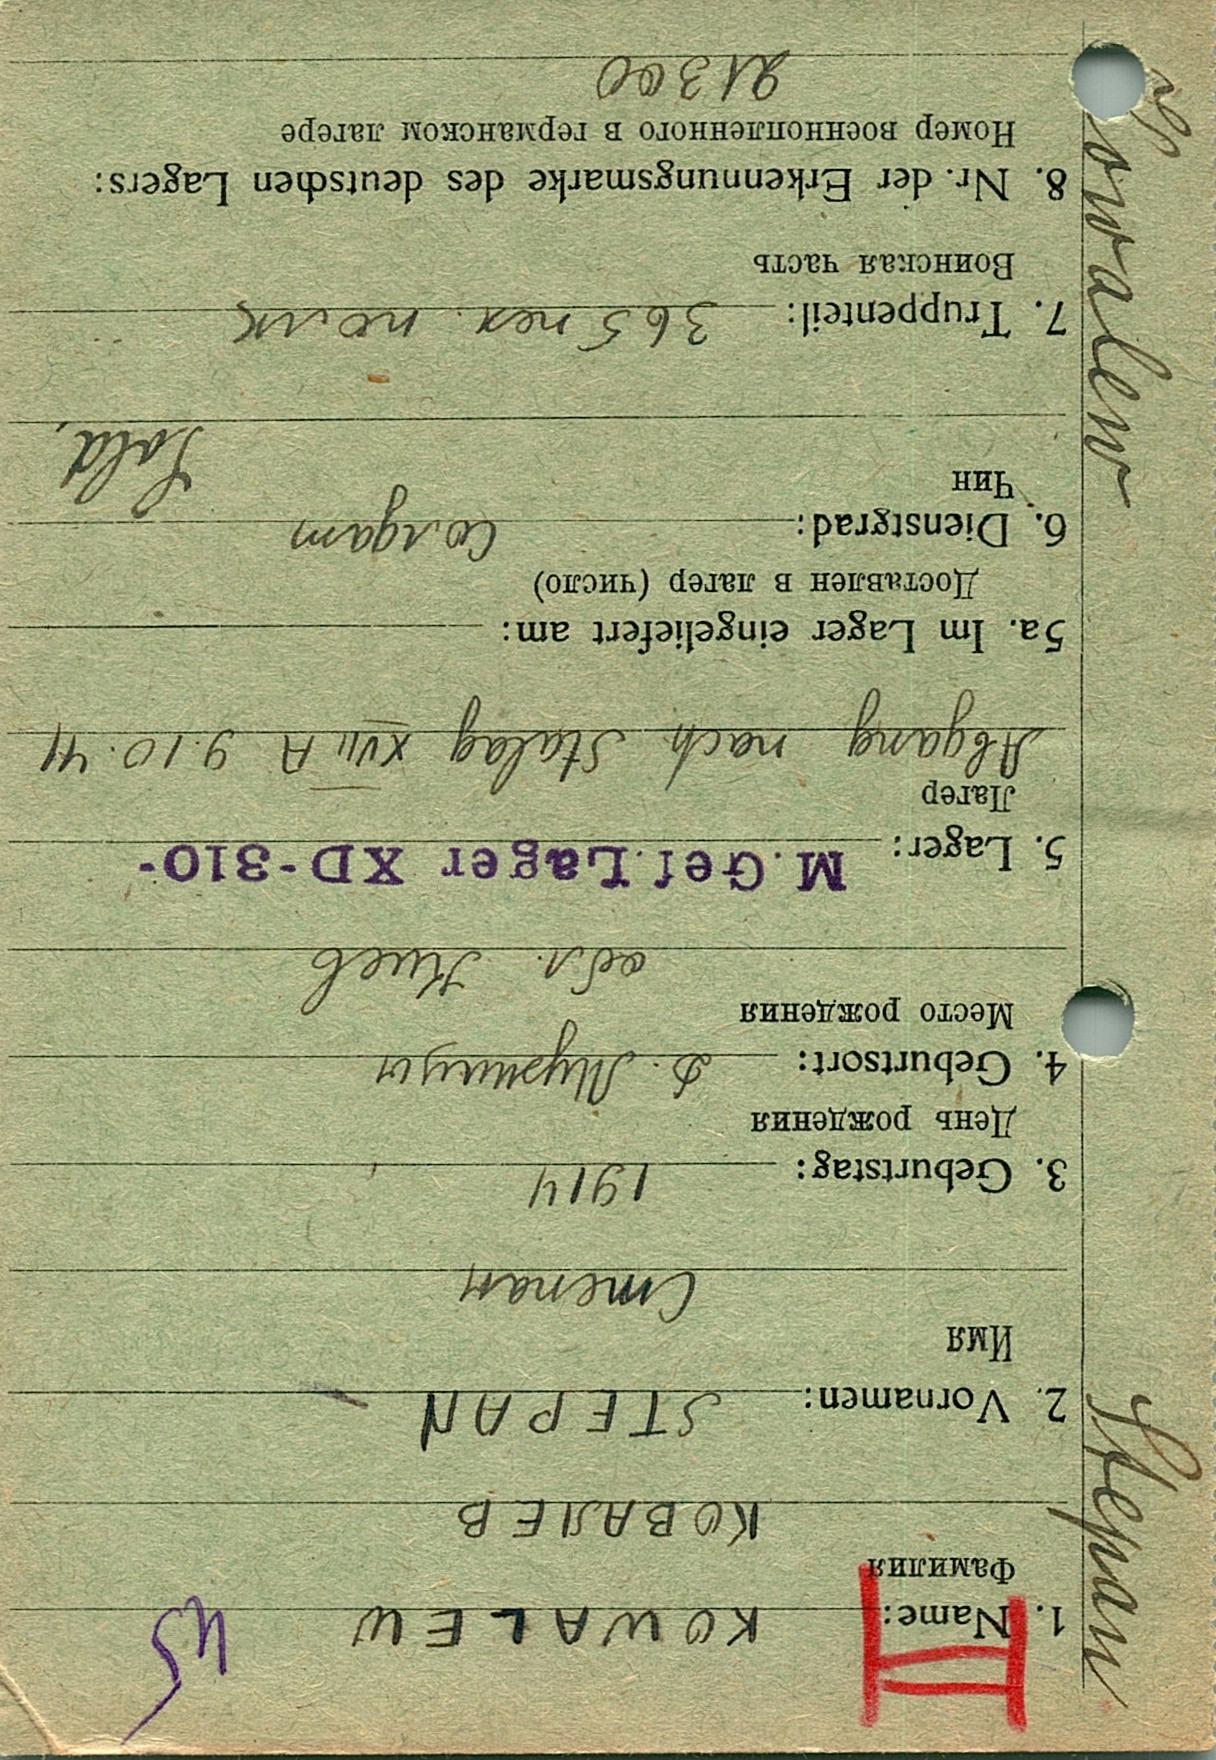 Kowalew Stepan
45
1. Name: KOWALEW
Фамилия
КОВАЛЕВ
2. Vornamen: STEPAN
Имя
Степан
3. Geburtstag: 1914
День рождения
4. Geburtsort: д.
Место рождения
обл. Киев
5. Lager: M.Gef.Lager XD-310-
Лагер
Abgang nach Stalag XVII A 9.10.41
5a. Im Lager eingeliefert am:
Доставлен в лагер (число)
6. Dienstgrad: Солдат
Чин
Sold.
7. Truppenteil: 365 пех. полк
Воинская часть
8. Nr. der Erkennungsmarke des deutschen Lagers:
Номер военнопленного в германском лагере
21300